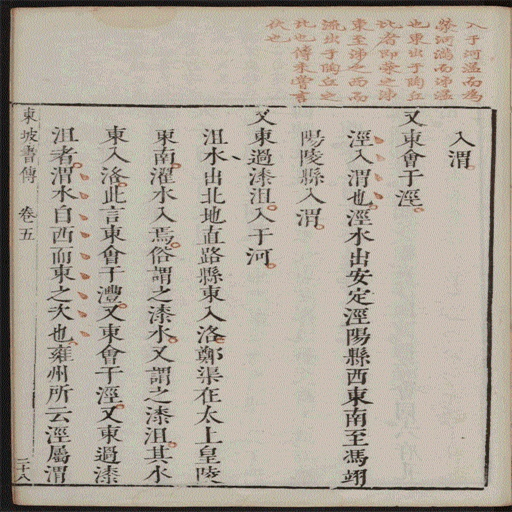 入于河溢而為
滎河濟而沛溢
也東出于陶丘
北者即滎之沛
東至沛之西而
流出于陶丘之
北也傳未嘗言
伏也
入渭
又東會于涇
涇入渭也涇水出安定涇陽縣西東南至馮翊
陽陵縣入渭
又東過漆沮入于河
沮水出北地直路縣東入洛鄭渠在太上皇陵
東南濯水入焉俗謂之漆水又謂之漆沮其水
東入洛此言東會于灃又東會于涇又東過漆
沮者渭水自西而東之次也雍州所云涇屬渭
東坡書傳 卷五 二十八